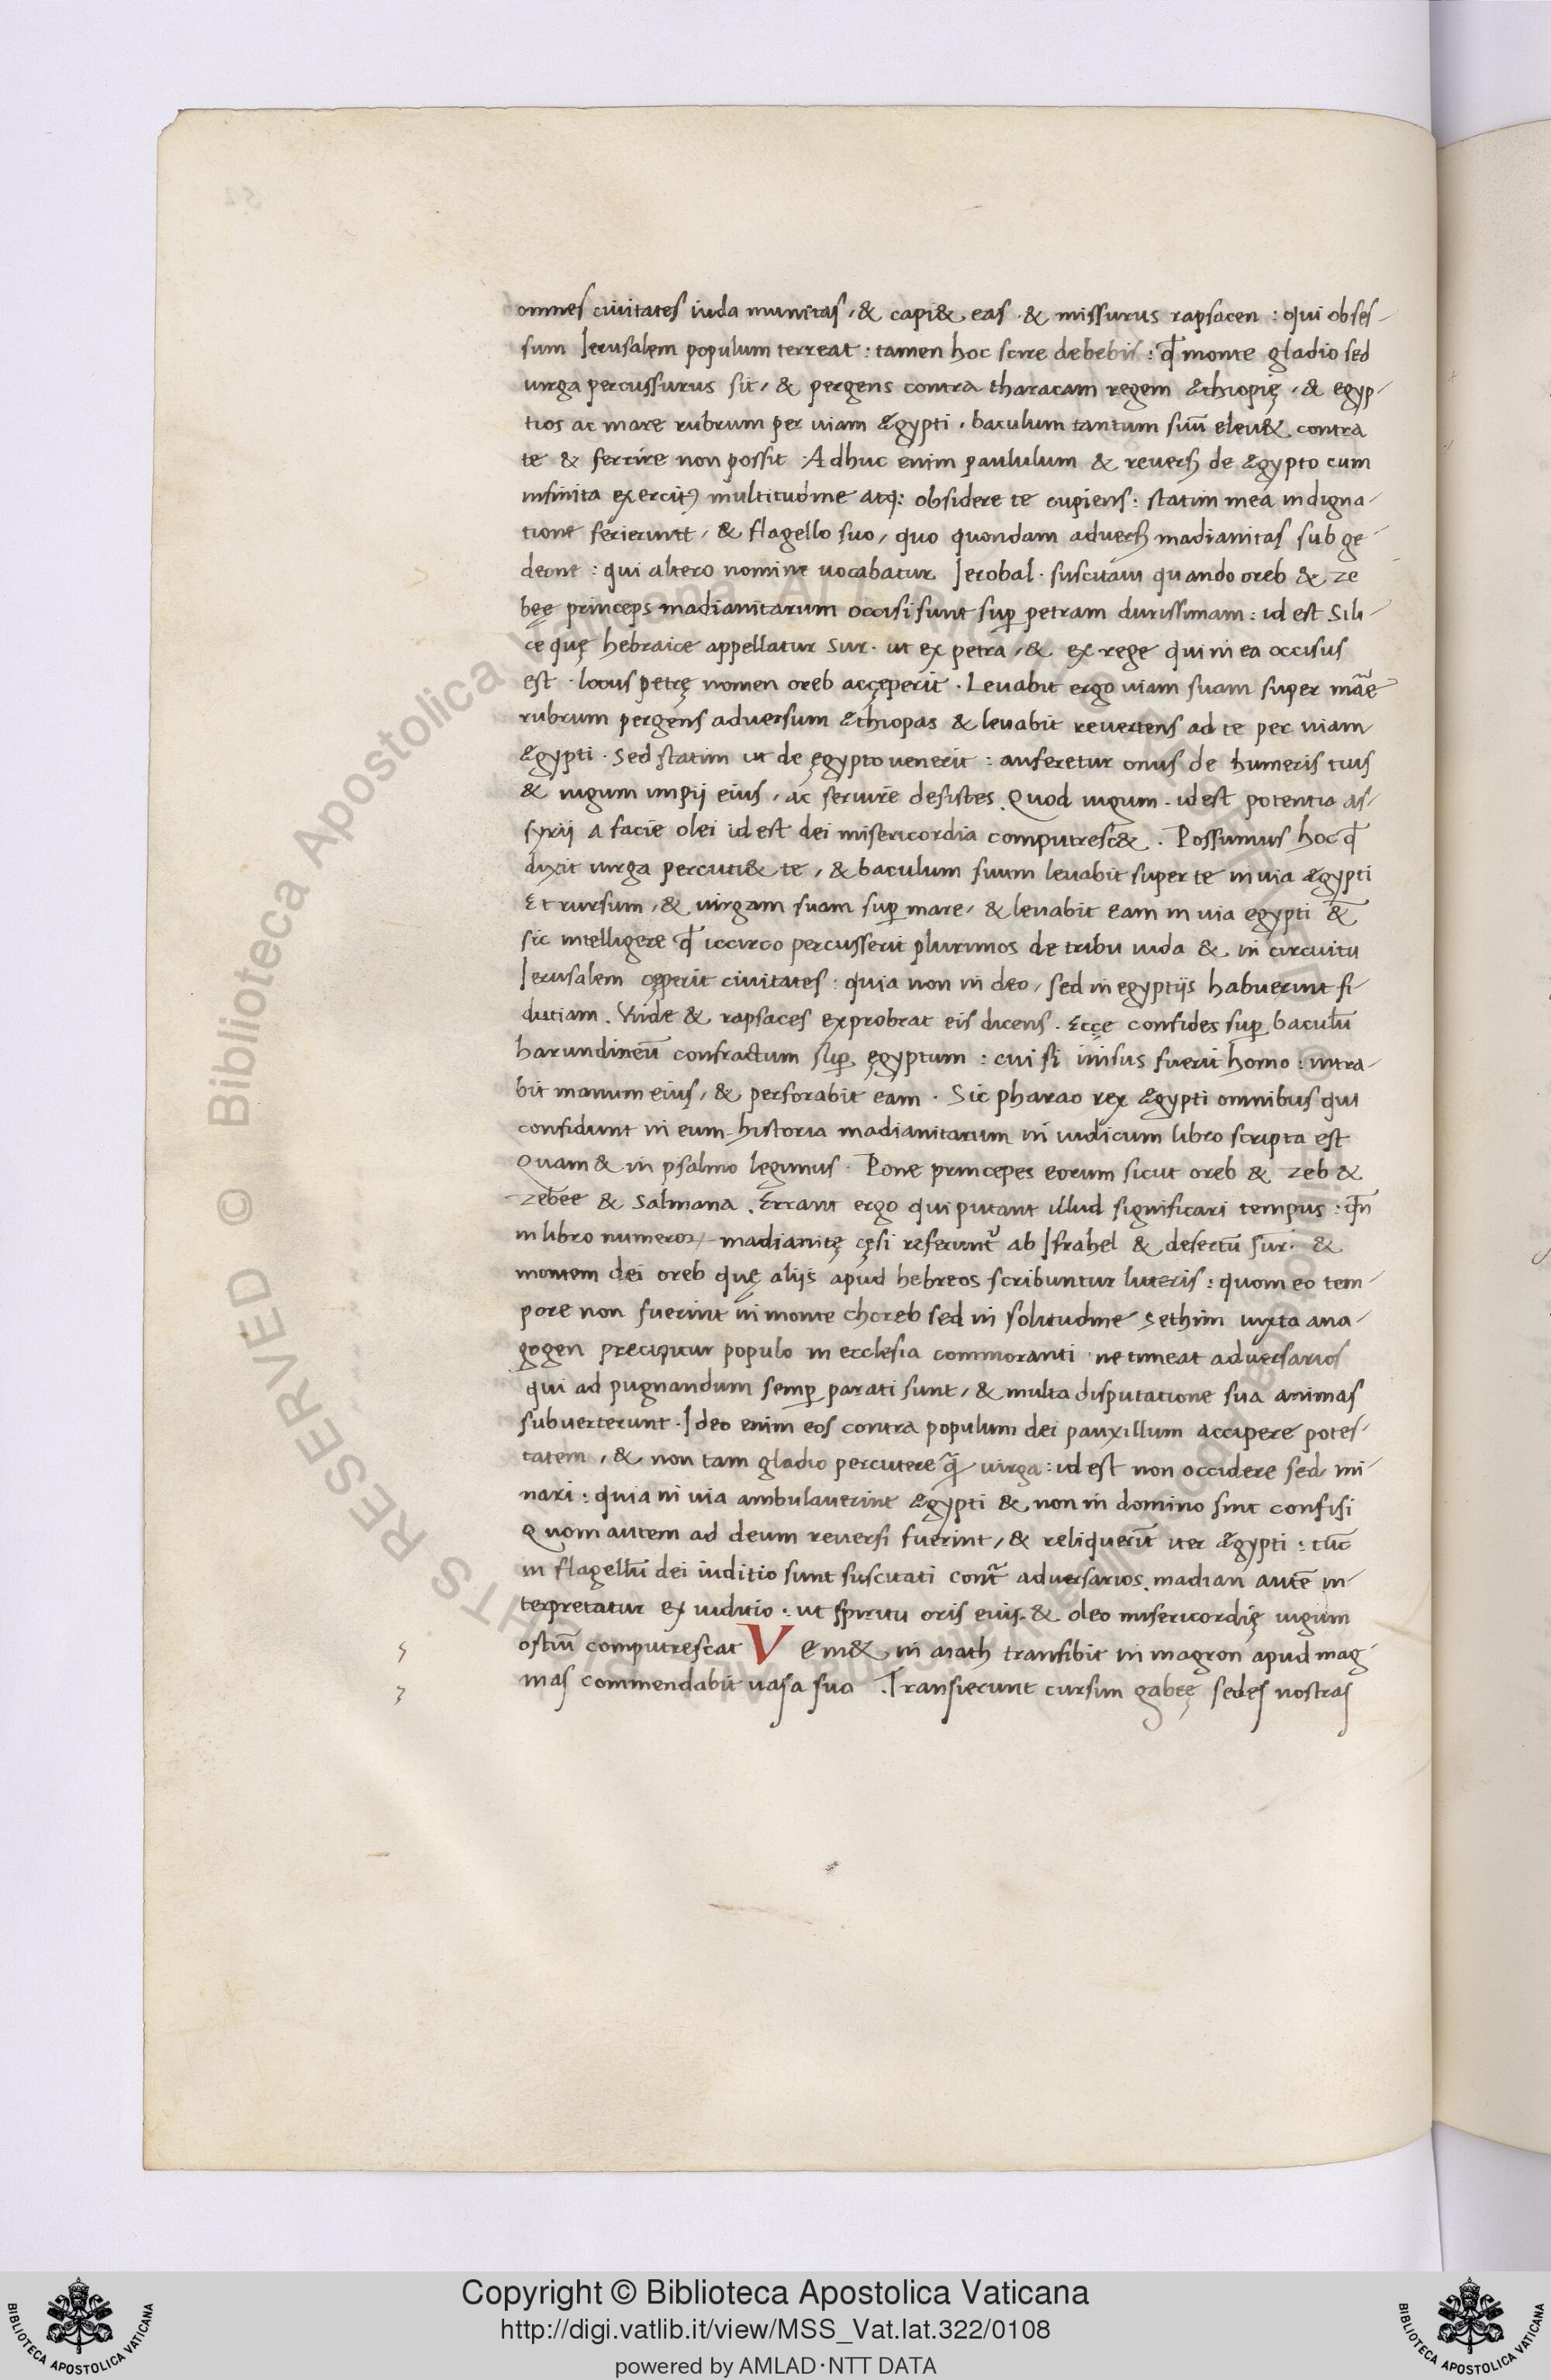 omnes ciuitates iuda munitas, & capi& eas · & missurus rapsacen : qui obses-
sum Ierusalem populum terreat : tamen hoc scire debebis : qđ monte gladio sed
uirga percussurus sit, & pergens contra tharacam regem æthiopię, & egyp-
tios ac mare rubrum per uiam ægypti, baculum tantum suū eleu& contra
te & ferrire non possit · Adhuc enim paululum & reuersꝰ de ægypto cum
infinita exercitꝰ multitudine atq: obsidere te cupiens : statim mea indigna-
tione ferierunt, & flagello suo, quo quondam aduersꝰ madianitas sub ge-
deone : qui altero nomine uocabatur Ierobal · suscitaui quando oreb & ze
beę princeps madianitarum occisi sunt suꝑ petram durissimam : id est Sili-
ce quę hebraice appellatur Sur · ut ex petra, & ex rege qui in ea occisus
est · locus petrę nomen oreb accęperit · Leuabit ergo uiam suam super māe
rubrum pergens aduersum æthiopas & leuabit reuertens ad te per uiam
ægypti · Sed statim ut de ęgypto uenerit : auferetur onus de humeris tuis
& iugum impij eius, ac seruire desistes. Quod iugum · id est potentia as-
syrii a facie olei id est dei misericordia computresc& · Possumus hoc qđ
dixit uirga percuti& te, & baculum suum leuabit super te in uia ægypti
Et rursum, & uirgam suam suꝑ mare, & leuabit eam in uia egypti &
sic intelligere qđ iccirco percusserit plurimos de tribu iuda & in circuitu
Ierusalem cęperit ciuitates : quia non in deo, sed in egyptijs habuerint fi-
dutiam. Vnde & rapsaces exprobrat eis dicens. Ecce confides suꝑ baculū
harundineū confractum suꝑ ęgyptum : cui si inisus fuerit homo : intra-
bit manum eius, & perforabit eam · Sic pharao rex ægypti omnibus qui
confidunt in eum · historia madianitarum in iudicum libro scripta est
Quam & in psalmo legimus · Pone princepes eorum sicut oreb & zeb &
zebee & Salmana. Errant ergo qui putant illud significari tempus : qn̄
in libro numeroꝝ madianitę cęsi referuntᷣ ab Israhel & desertū sur · &
montem dei oreb quę aliis apud hebreos scribuntur litteris : quom eo tem-
pore non fuerint in monte choreb sed in solitudine Sethim iuxta ana-
gogen precipitur populo in ecclesia commoranti · ne timeat aduersarios
qui ad pugnandum semꝑ parati sunt, & multa disputatione sua animas
subuerterunt · Ideo enim eos contra populum dei pauxillum accipere potes-
tatem, & non tam gladio percutere q̄ uirga : id est non occidere sed mi-
nari : quia in uia ambulauerint ægypti & non in domino sint confisi
Quom autem ad deum reuersi fuerint, & reliquerūt iter ægypti : tūc
in flagellū dei iuditio sunt suscitati contᷓ aduersarios. madian autē in-
terpretatur ex iuditio · ut spiritu oris eius & oleo misericordię iugum
ostiū computrescat Veni& in aiath transibit in magron apud mag-
mas commendabit uasa sua Transierunt cursim gabeę sedes nostras
Copyright © Biblioteca Apostolica Vaticana
http://digi.vatlib.it/view/MSS_Vat.lat.322/0108
powered by AMLAD·NTT DATA
BIBLIOTECA APOSTOLICA VATICANA
BIBLIOTECA APOSTOLICA VATICANA